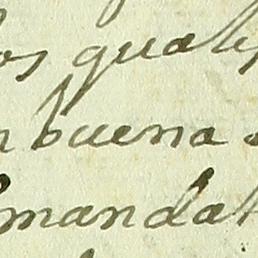 os quales
n buena
mandat